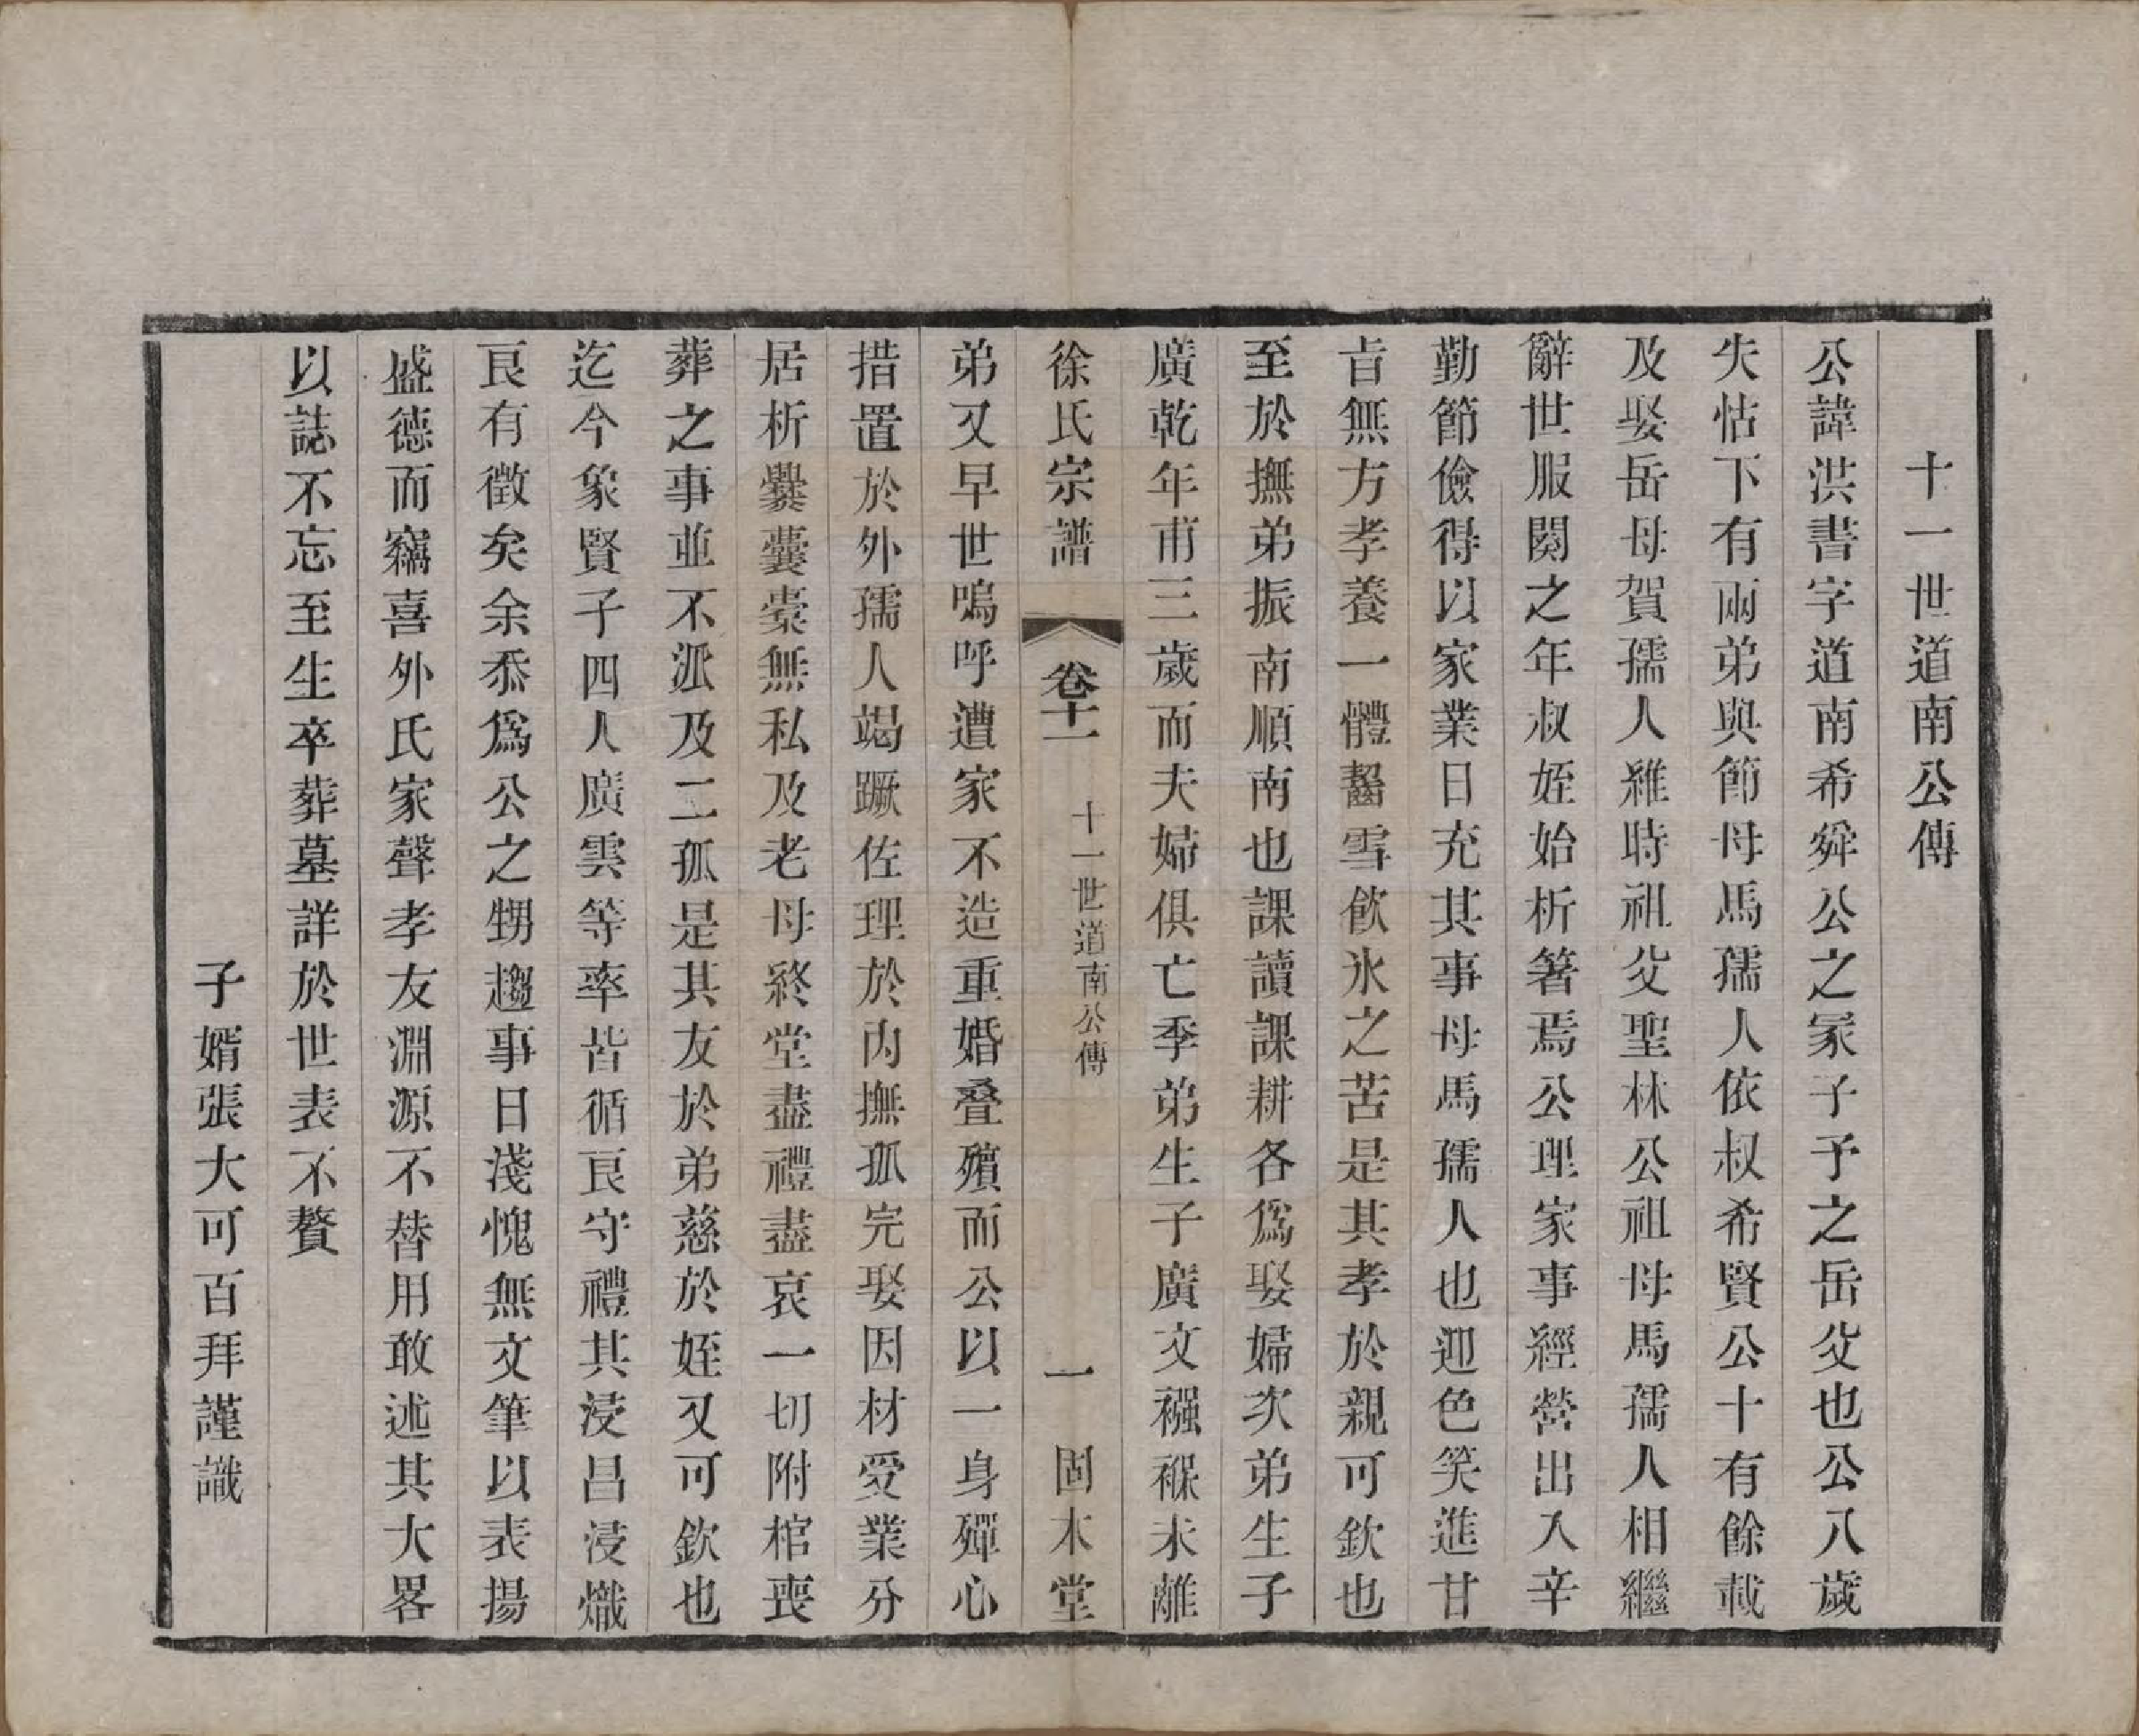 十一世道南公傳
公諱洪書字道南希舜公之冢子予之岳父也公八歲
失怙下有兩弟與節母馬孺人依叔希賢公十有餘載
及娶岳母賀孺人維時祖父聖林公祖母馬孺人相繼
辭世服闋之年叔姪始析箸焉公理家事經營出入辛
勤節儉得以家業日充其事母馬孺人也迎色笑進甘
旨無方孝養一體齧雪飲氷之苦是其孝於親可欽也
至於撫弟振南順南也課讀課耕各爲娶婦次弟生子
廣乾年甫三歲而夫婦俱亡季弟生子廣文襁褓未離
徐氏宗譜 卷十一 十一世道南公傳 一 固本堂
弟又早世嗚呼遭家不造重婚叠殯而公以一身殫心
措置於外孺人竭蹶佐理於内撫孤完娶因材愛業分
居析爨囊橐無私及老母終堂盡禮盡哀一切附棺喪
葬之事並不派及二孤是其友於弟慈於姪又可欽也
迄今象賢子四人廣雲等率皆循良守禮其浸昌浸熾
良有徵矣余忝爲公之甥趨事日淺愧無文筆以表揚
盛德而竊喜外氏家聲孝友淵源不替用敢述其大畧
以誌不忘至生卒葬墓詳於世表不贅
子婿張大可百拜謹識